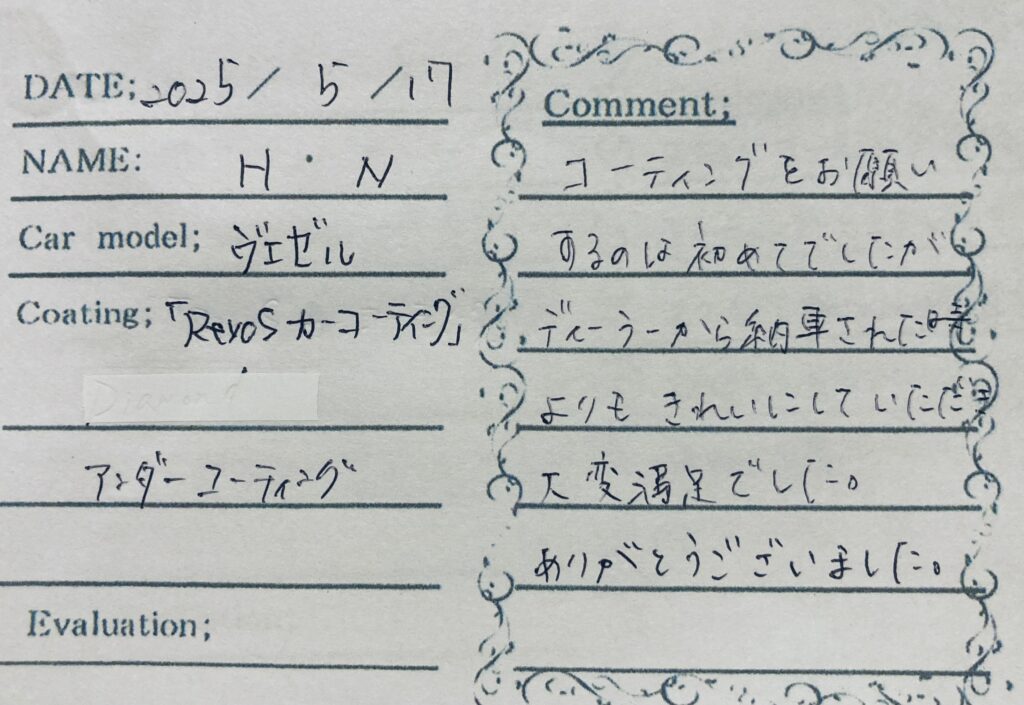 DATE; 2025 / 5 / 17
NAME: H・N
Car model; ヴェゼル
Coating; 「RevoSカーコーティング」
アンダーコーティング
Evaluation;
Comment;
コーティングをお願い
するのは初めてでしたが
ディーラーから納車された時
よりもきれいにしていただき
大変満足でした。
ありがとうございました。